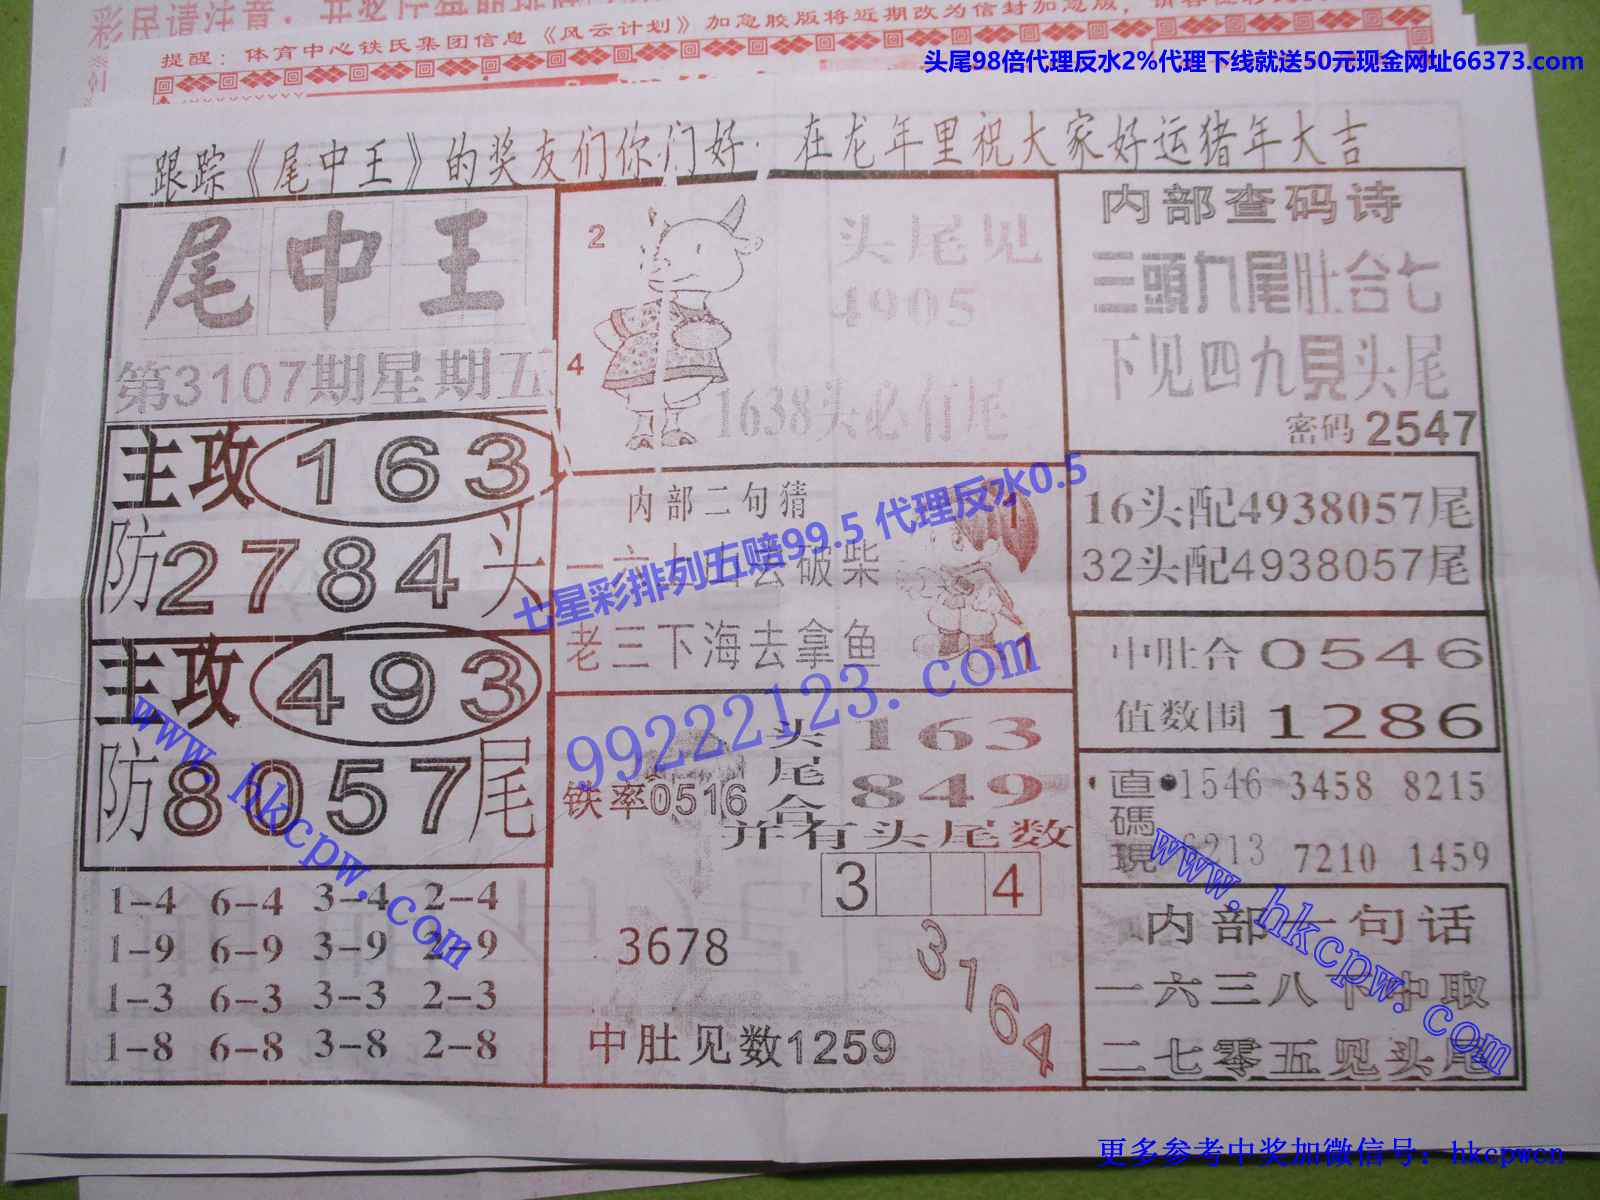 彩民请注意
提醒：体育中心铁氏集团信息《风云计划》加急胶版将近期改为信封加急版，
头尾98倍代理反水2%代理下线就送50元现金网址66373.com
跟踪《尾中王》的奖友们你们好：在龙年里祝大家好运猪年大吉
尾中王
第3107期星期五
主攻163
防2784头
主攻493
防8057尾
1-4 6-4 3-4 2-4
1-9 6-9 3-9 2-9
1-3 6-3 3-3 2-3
1-8 6-8 3-8 2-8
2
4
头尾见
4905
1638头必有尾
内部二句猜
去破柴
老三下海去拿鱼
1
1
七星彩排列五赔99.5 代理反水0.5
99222123.com
铁率0516
头尾合
163
849
并有头尾数
3 4
3678
3164
中肚见数1259
内部查码诗
三頭九尾肚合七
下见四九見头尾
密码2547
16头配4938057尾
32头配4938057尾
中肚合0546
值数围1286
直碼現
1546 3458 8215
6213 7210 1459
内部一句话
一六三八下中取
二七零五见头尾
www.hkcpw.com
www.hkcpw.com
更多参考中奖加微信号：hkcpwcn